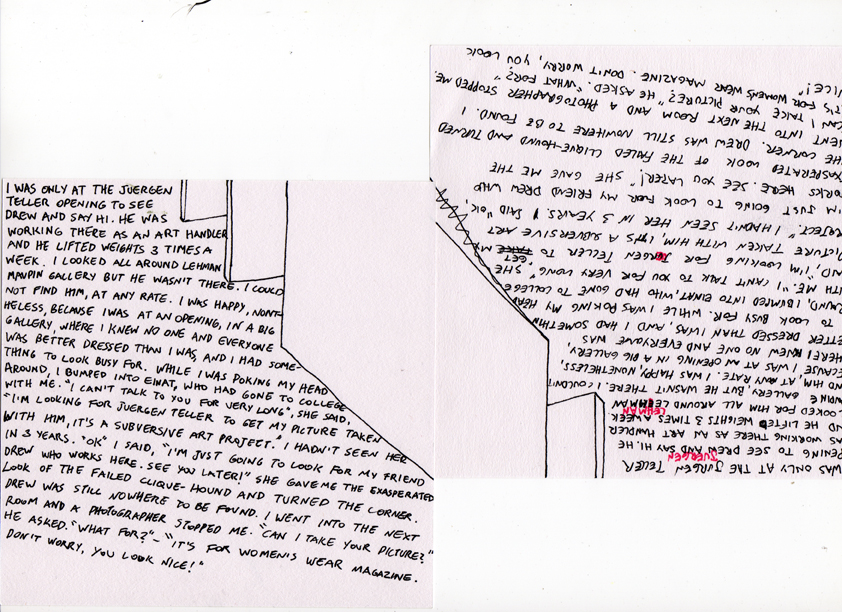 I WAS ONLY AT THE JUERGEN
TELLER OPENING TO SEE
DREW AND SAY HI. HE WAS
WORKING THERE AS AN ART HANDLER
AND HE LIFTED WEIGHTS 3 TIMES A
WEEK. I LOOKED ALL AROUND LEHMAN
MAUPIN GALLERY BUT HE WASN'T THERE. I COULD
NOT FIND HIM, AT ANY RATE. I WAS HAPPY, NONT-
HELESS, BECAUSE I WAS AT AN OPENING, IN A BIG
GALLERY, WHERE I KNEW NO ONE AND EVERYONE
WAS BETTER DRESSED THAN I WAS, AND I HAD SOME-
THING TO LOOK BUSY FOR. WHILE I WAS POKING MY HEAD
AROUND, I BUMPED INTO EINAT, WHO HAD GONE TO COLLEGE
WITH ME. "I CAN'T TALK TO YOU FOR VERY LONG", SHE SAID,
"I'M LOOKING FOR JUERGEN TELLER TO GET MY PICTURE TAKEN
WITH HIM, IT'S A SUBVERSIVE ART PROJECT." I HADN'T SEEN HER
IN 3 YEARS. "OK" I SAID, "I'M JUST GOING TO LOOK FOR MY FRIEND
DREW WHO WORKS HERE. SEE YOU LATER!" SHE GAVE ME THE EXASPERATED
LOOK OF THE FAILED CLIQUE-HOUND AND TURNED THE CORNER.
DREW WAS STILL NOWHERE TO BE FOUND. I WENT INTO THE NEXT
ROOM AND A PHOTOGRAPHER STOPPED ME. "CAN I TAKE YOUR PICTURE?"
HE ASKED. "WHAT FOR?" - "IT'S FOR WOMEN'S WEAR MAGAZINE.
DON'T WORRY, YOU LOOK NICE!"
WAS ONLY AT THE JURGEN TELLER
JUERGEN
PENING TO SEE DREW AND SAY HI. HE
WAS WORKING THERE AS AN ART HANDLER
ND HE LIFTED WEIGHTS 3 TIMES A WEEK
LEHMAN
LOOKED FOR HIM ALL AROUND LEHMAN
GALLERY, BUT HE WASN'T THERE. I COULDN'T
ND HIM, AT ANY RATE. I WAS HAPPY, NONETHELESS,
ECAUSE I WAS AT AN OPENING IN A BIG GALLERY,
HERE I KNEW NO ONE AND EVERYONE WAS
ETTER DRESSED THAN I WAS, AND I HAD SOMETHIN
TO LOOK BUSY FOR. WHILE I WAS POKING MY HEAD
ROUND, I BUMPED INTO EINAT, WHO HAD GONE TO COLLEGE
ITH ME. "I CAN'T TALK TO YOU FOR VERY LONG," SHE
"I'M LOOKING FOR JUERGEN TELLER TO TAKE GET MY
PICTURE TAKEN WITH HIM, IT'S A SUBVERSIVE ART
ROJECT." I HADN'T SEEN HER IN 3 YEARS. I SAID "OK,
I'M JUST GOING TO LOOK FOR MY FRIEND DREW WHO
ORKS HERE. SEE YOU LATER!" SHE GAVE ME THE
EXASPERATED LOOK OF THE FAILED CLIQUE-HOUND AND TURNED
HE CORNER. DREW WAS STILL NOWHERE TO BE FOUND. I
ENT INTO THE NEXT ROOM AND A PHOTOGRAPHER STOPPED ME.
CAN I TAKE YOUR PICTURE?" HE ASKED. "WHAT FOR?" "
T'S FOR WOMEN'S WEAR MAGAZINE. DON'T WORRY, YOU LOOK
ICE!"